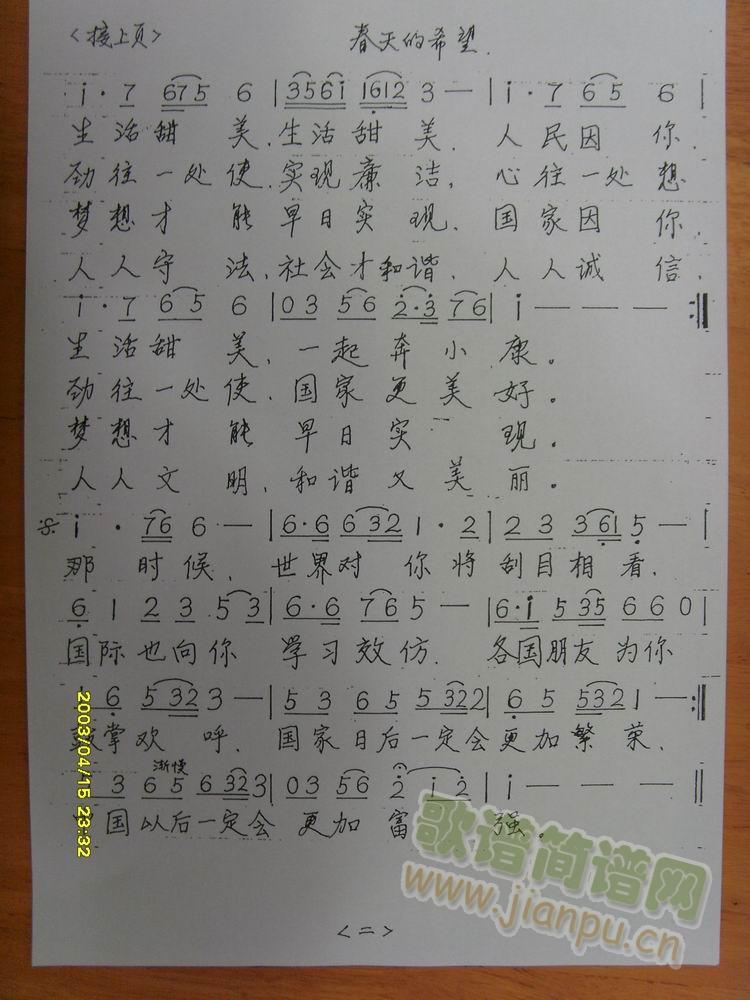 <接上页> 春天的希望.
i·7 675 6 | 3561 1612 3 — | i·7 65 6 |
生活甜 美,生活甜 美. 人民因 你,
劲往一处使,实现廉洁, 心往一处想
梦想才 能早日实 现. 国家因 你,
人人守 法,社会才和谐, 人人诚 信,
i·7 65 6 | 03 56 2·3 76 | i — — — :‖
生活甜 美, 一起奔小康。
劲往一处使, 国家更美好。
梦想才 能 早日实 现。
人人文 明, 和谐又美丽。
i· 76 6 — | 6·6 632 1·2 | 23 361 5 — |
那 时候, 世界对 你将刮目相看,
6 1 23 53 | 6·6 765 5 — | 6·i 535 660 |
国际也向你 学习效仿. 各国朋友为你
6 532 3 — | 53 65 5322 | 65 5321 — :‖
鼓掌欢 呼, 国家日后一定会更加繁荣,
渐慢
3 65 6323 | 03 56 2 i2 | i — — — ‖
国以后一定会 更加富 强。
<二>
2003/04/15 23:32
歌谱简谱网
www.jianpu.cn